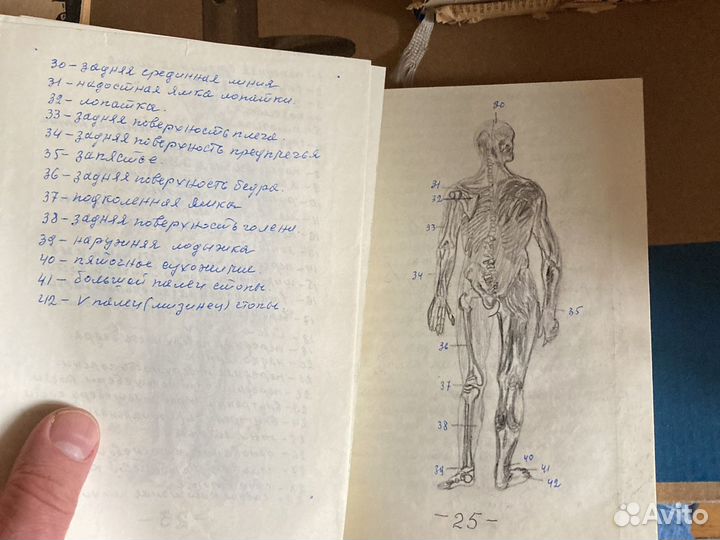 30 – задняя срединная линия
31 – надостная ямка лопатки.
32 – лопатка.
33 – задняя поверхность плеча.
34 – задняя поверхность предплечья
35 – запястье.
36 – задняя поверхность бедра.
37 – подколенная ямка
38 – задняя поверхность голени.
39 – наружняя лодыжка
40 – пяточное сухожилие
41 – большой палец стопы
42 – V палец (мизинец) стопы.
30
31
32
33
34
35
36
37
38
39
40
41
42
- 25 -
Avito